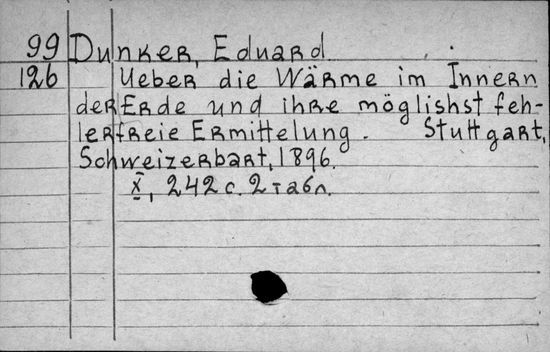 99 Dunker, Eduard
126 Ueber die Wärme im Innern
der Erde und ihre möglishst feh-
lerfreie Ermittelung. Stuttgart,
Schweizerbart, 1896.
X, 242 c. 2 табл.